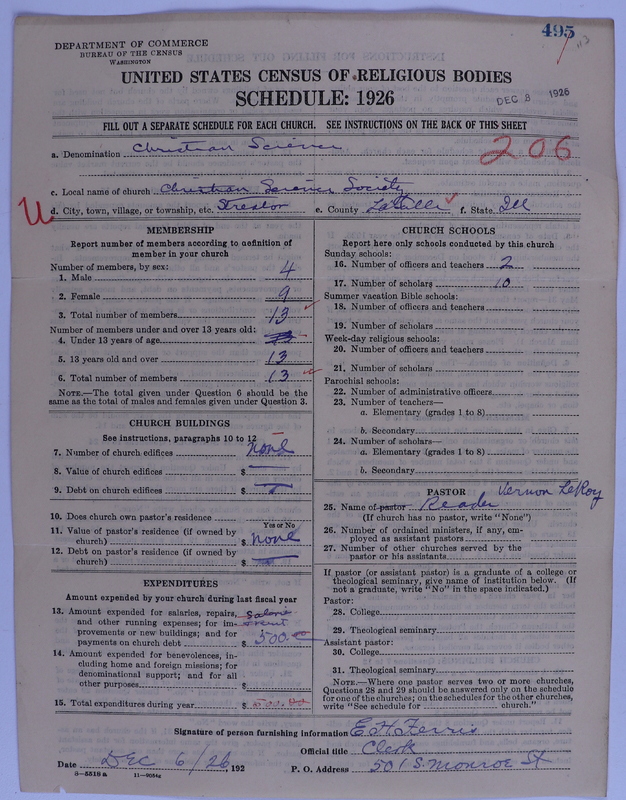 495
113
DEPARTMENT OF COMMERCE
BUREAU OF THE CENSUS
WASHINGTON
UNITED STATES CENSUS OF RELIGIOUS BODIES
SCHEDULE: 1926
DEC 8 1926
FILL OUT A SEPARATE SCHEDULE FOR EACH CHURCH. SEE INSTRUCTIONS ON THE BACK OF THIS SHEET
a. Denomination Christian Science
206
c. Local name of church Christian Science Society
U
d. City, town, village, or township, etc. Streator e. County LaSalle f. State Ill
MEMBERSHIP
Report number of members according to definition of member in your church
Number of members, by sex:
1. Male 4
2. Female 9
3. Total number of members 13
Number of members under and over 13 years old:
4. Under 13 years of age
5. 13 years old and over 13
6. Total number of members 13
NOTE.—The total given under Question 6 should be
same as the total of males and females given under Question 3.
CHURCH BUILDINGS
See instructions, paragraphs 10 to 12
7. Number of church edifices none
8. Value of church edifices $
9. Debt on church edifices $
10. Does church own pastor's residence
Yes or No
11. Value of pastor's residence (if owned by
church) $ none
12. Debt on pastor's residence (if owned by
church) $
EXPENDITURES
Amount expended by your church during last fiscal year
13. Amount expended for salaries, repairs,
and other running expenses; for im-
provements or new buildings; and for
payments on church debt $ 500.00
14. Amount expended for benevolences, in-
cluding home and foreign missions; for
denominational support; and for all
other purposes $
15. Total expenditures during year $ 500.00
CHURCH SCHOOLS
Report here only schools conducted by this church
Sunday schools:
16. Number of officers and teachers 2
17. Number of scholars 10
Summer vacation Bible schools:
18. Number of officers and teachers
19. Number of scholars
Week-day religious schools:
20. Number of officers and teachers
21. Number of scholars
Parochial schools:
22. Number of administrative officers
23. Number of teachers—
a. Elementary (grades 1 to 8)
b. Secondary
24. Number of scholars—
a. Elementary (grades 1 to 8)
b. Secondary
PASTOR Vernon LeRoy
25. Name of pastor Reader
(If church has no pastor, write "None")
26. Number of ordained ministers, if any, em-
ployed as assistant pastors
27. Number of other churches served by the
pastor or his assistants
If pastor (or assistant pastor) is a graduate of a college or
theological seminary, give name of institution below. (If
not a graduate, write "No" in the space indicated.)
Pastor:
28. College
29. Theological seminary
Assistant pastor:
30. College
31. Theological seminary
NOTE.—Where one pastor serves two or more churches,
Questions 28 and 29 should be answered only on the schedule
for one of the churches; on the schedules for the other churches,
write "See schedule for church."
Signature of person furnishing information E H Ferris
Official title Clerk
Date Dec 6/26 192 P. O. Address 501 S. Monroe St
8—5518 a 11—9084z